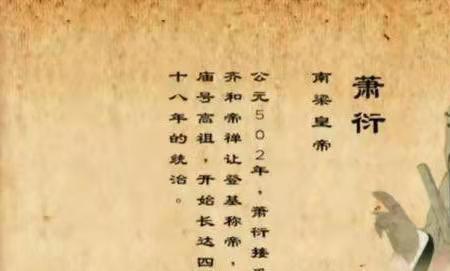 萧衍
南梁皇帝
公元502年，萧衍接
齐和帝禅让登基称帝，
庙号高祖，开始长达四
十八年的统治。